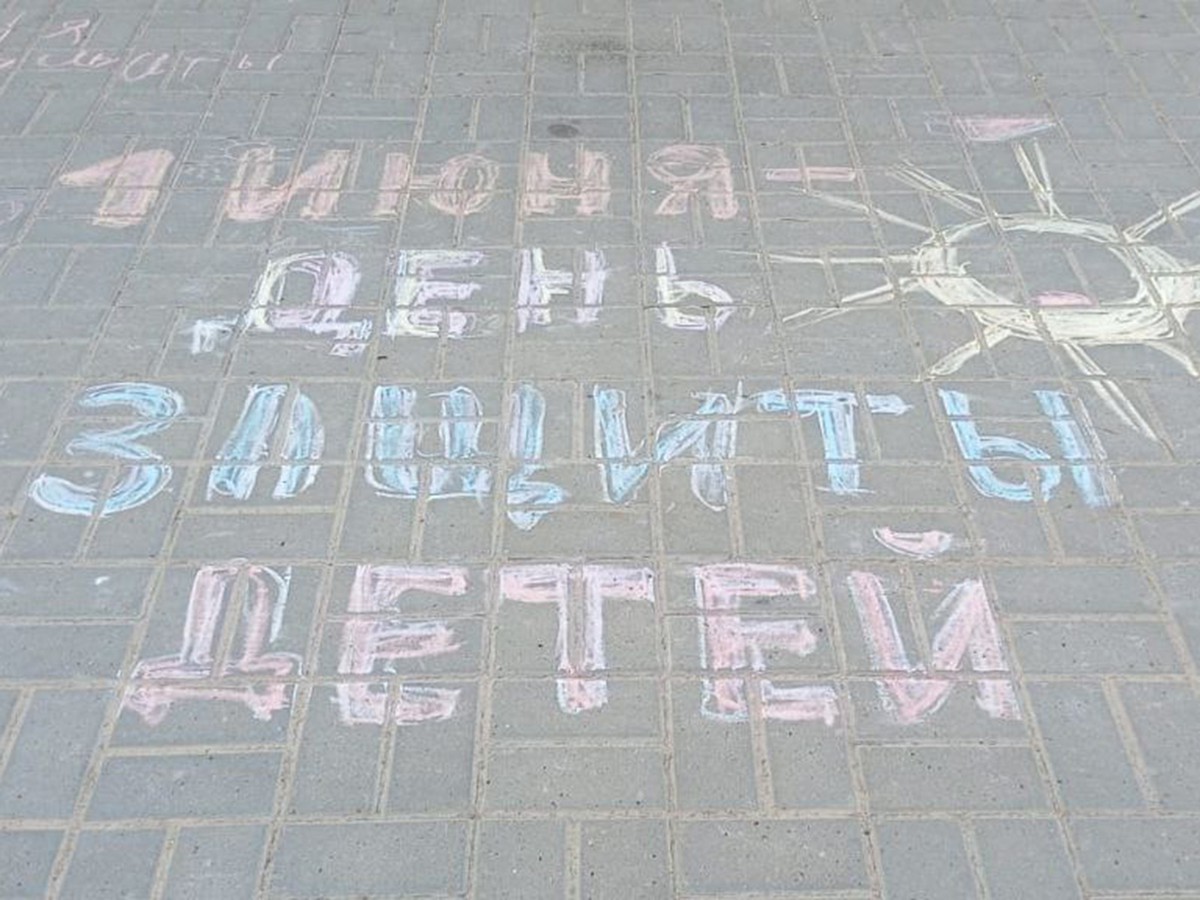 1 ИЮНЯ-
ДЕНЬ
ЗАЩИТЫ
ДЕТЕЙ